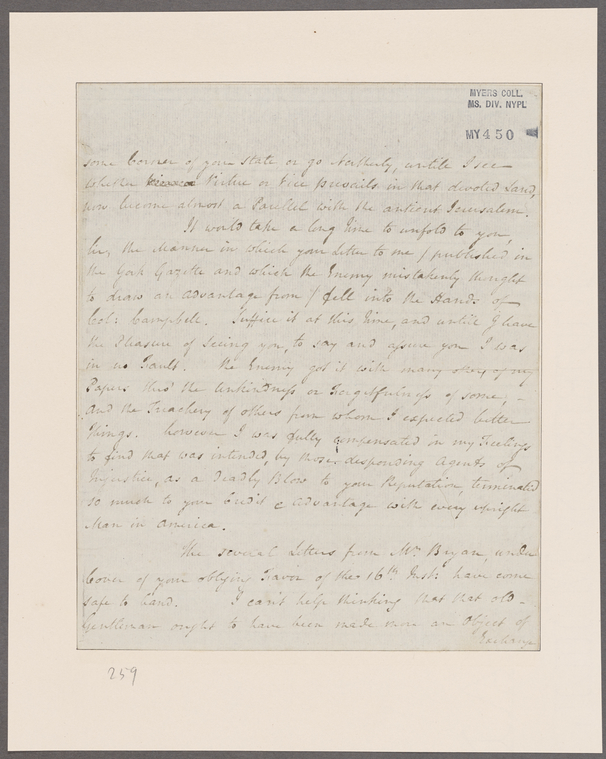 MYERS COLL.
MS. DIV. NYPL
MY 450
some Corner of your State or go Northerly, untile I see
whether Virtue or Vice prevails in that devoted Land,
now become almost a Parallel with the antient Jerusalem.
It would take a long time to unfold to you
Sir, the Manner in which your Letter to me / published in
the York Gazette and which the Enemy mistakenly thought
to draw an advantage from / fell into the Hands of
Col: Campbell. Suffice it at this time, and untile I have
the Pleasure of seeing you, to say and assure you I was
in no Fault. The Enemy got it with many other of my
Papers thro' the Unkindness or Forgitfulness of some, -
and the Treachery of others from whom I expected better
things. however I was fully compensated in my Feelings
to find that was intended, by those desponding Agents of
Injustice, as a Deadly Blow to your Reputation, terminated
so much to your Credit & advantage with every upright
Man in America.
The several Letters from Mr. Bryan, under
Cover of your obliging Favor of the 16th. Inst: have come
safe to hand. I can't help thinking that that old -
Gentleman ought to have been made more an Object of
Exchange
259